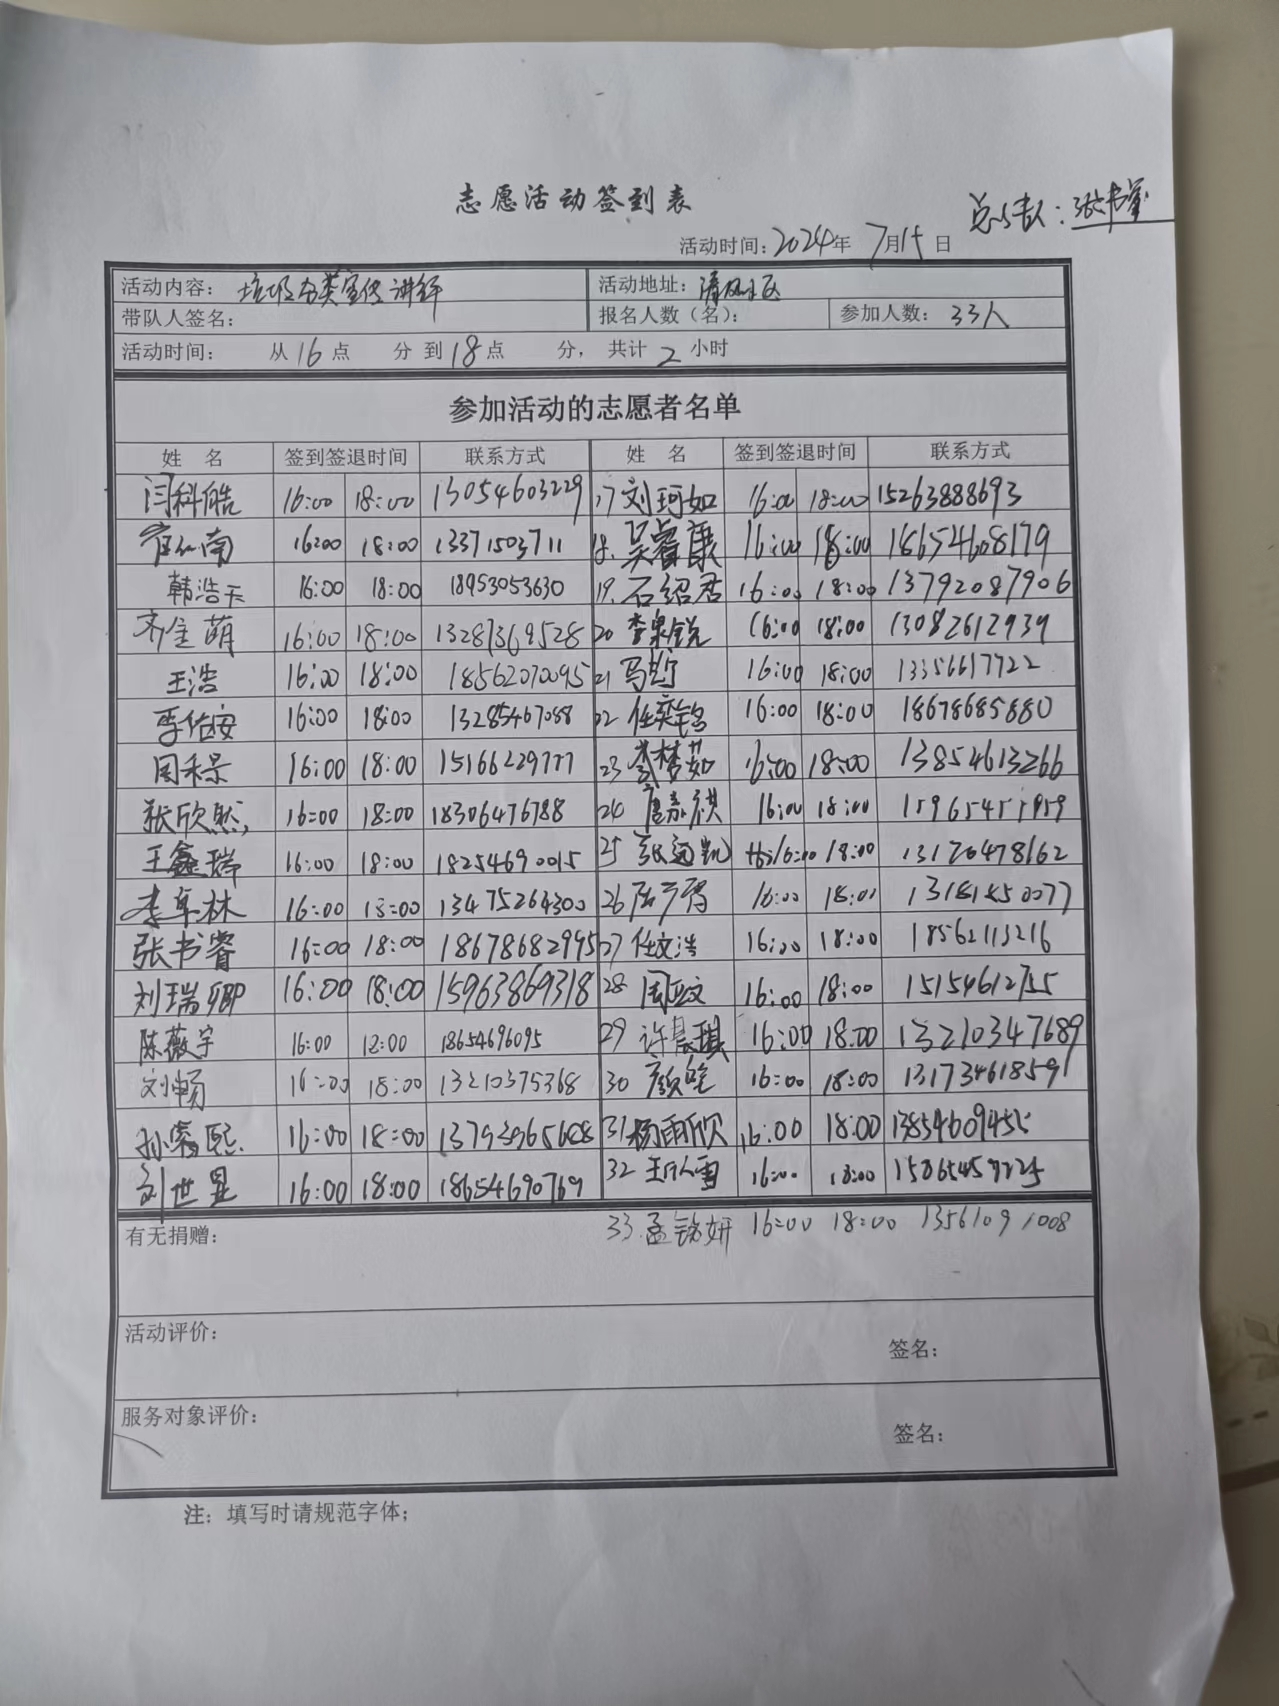 志愿活动签到表
总负责人：张书睿
活动时间：2024年 7月15日
活动内容： 垃圾分类宣传讲解 活动地址： 清风小区
带队人签名： 报名人数（名）： 参加人数： 33人
活动时间： 从16点 分到18点 分，共计2小时
参加活动的志愿者名单
姓 名 签到签退时间 联系方式 姓 名 签到签退时间 联系方式
闫科皓 16:00 18:00 13054603229 17 刘珂如 16:00 18:00 15263888693
南 16:00 18:00 13371503711 18. 吴睿康 16:00 18:00 18654608179
韩浩天 16:00 18:00 18953053630 19. 石绍君 16:00 18:00 13792087906
齐 萌 16:00 18:00 13287369528 20 李泉锐 16:00 18:00 13082612939
王浩 16:00 18:00 18562070095 21 马哲 16:00 18:00 13356617722
李佑安 16:00 18:00 13285467088 22 任奕 16:00 18:00 18678685880
周禾景 16:00 18:00 15166229777 23 李梦茹 16:00 18:00 13854613266
张欣然 16:00 18:00 18306476788 24 唐嘉祺 16:00 18:00
王鑫瑞 16:00 18:00 18254690015 25 张 凯 16:00 18:00 13120478162
李卓林 16:00 18:00 13475264300 26 16:00 18:00 13181850077
张书睿 16:00 18:00 18678682995 27 任文浩 16:00 18:00 18562113216
刘瑞卿 16:00 18:00 15963869318 28 周 文 16:00 18:00 15154612755
陈薇宇 16:00 18:00 18654696095 29 许晨琪 16:00 18:00 13210347689
刘畅 16:00 18:00 13210375368 30 颜 16:00 18:00 13173461859
孙睿熙 16:00 18:00 31 杨雨欣 16:00 18:00
刘世昱 16:00 18:00 18654690769 32 王欣雪 16:00 18:00
有无捐赠： 33. 孟铭妍 16:00 18:00 13561091008
活动评价：
签名：
服务对象评价：
签名：
注：填写时请规范字体；